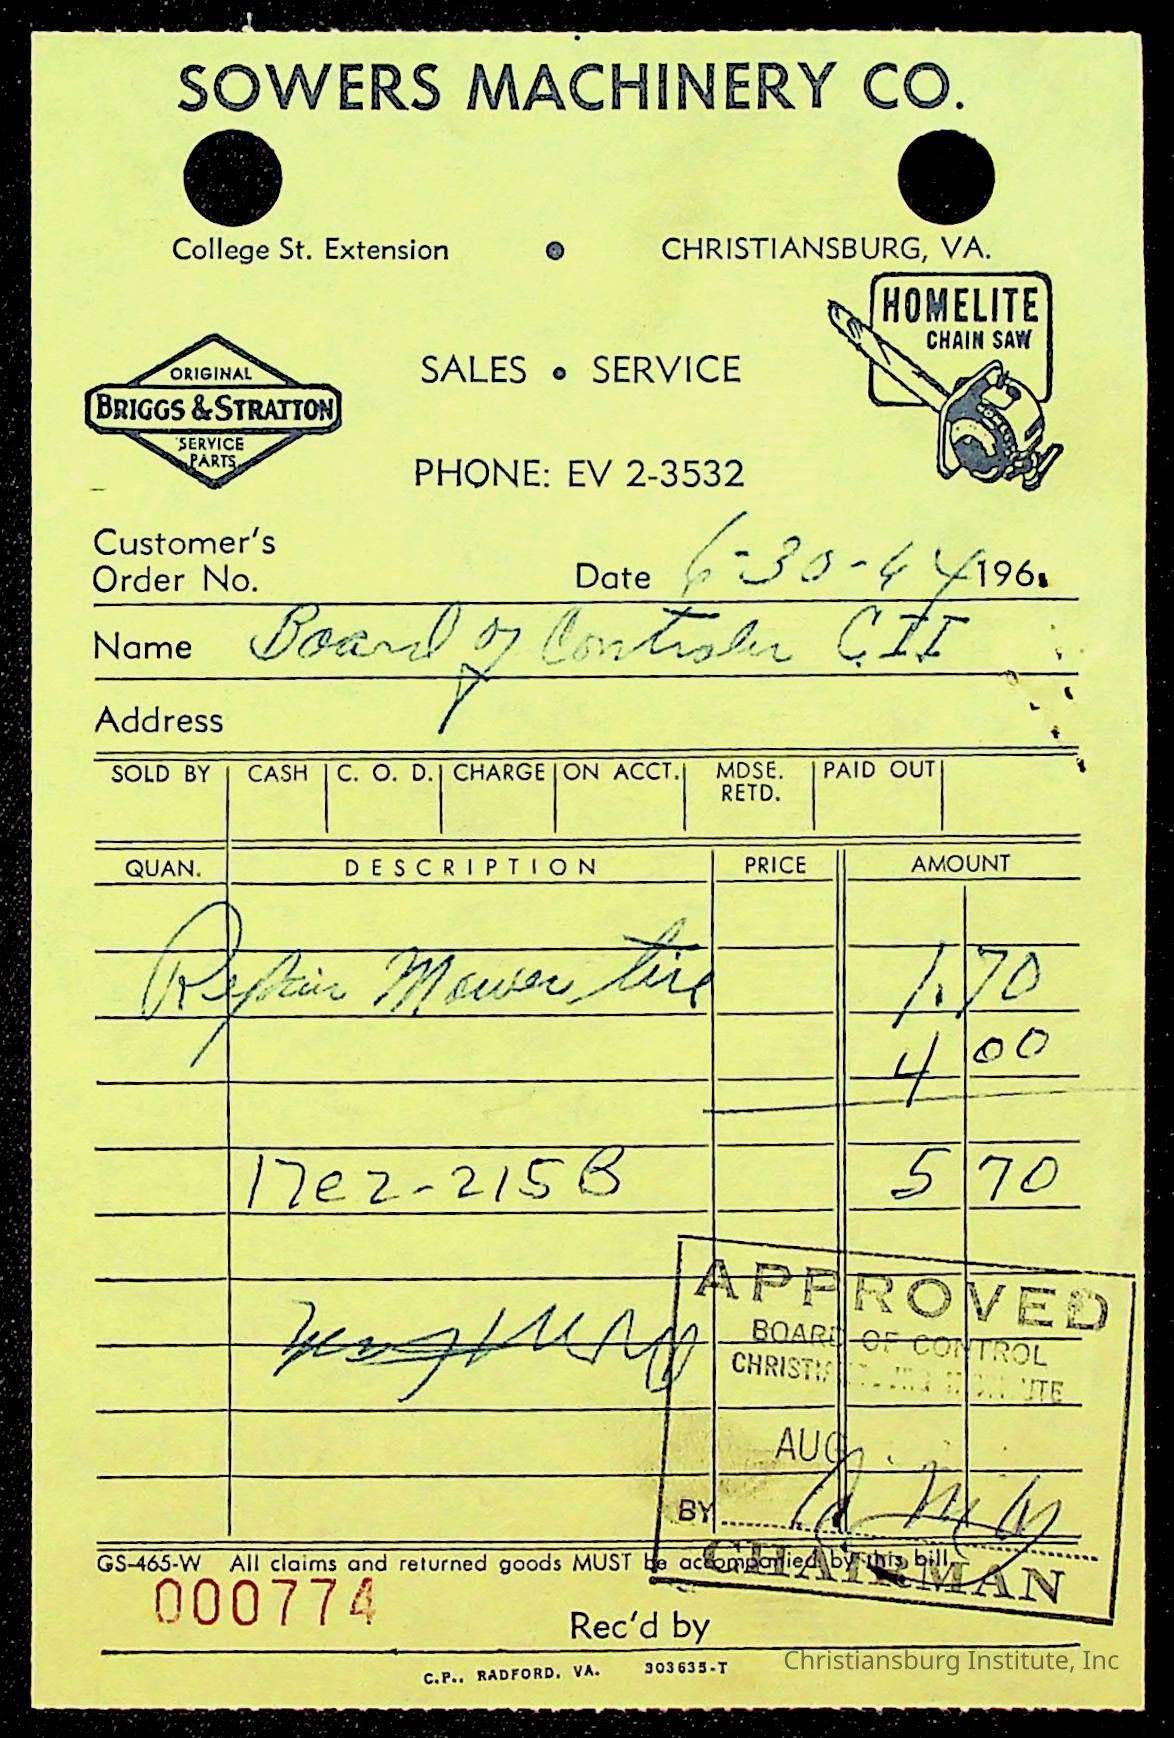 SOWERS MACHINERY CO.
College St. Extension • CHRISTIANSBURG, VA.
HOMELITE
CHAIN SAW
ORIGINAL
BRIGGS & STRATTON
SERVICE
PARTS
SALES • SERVICE
PHONE: EV 2-3532
Customer's
Order No.
Date 6-30-64 196
Name Board of Control CII
Address
SOLD BY CASH C. O. D. CHARGE ON ACCT. MDSE. RETD. PAID OUT
QUAN. DESCRIPTION PRICE AMOUNT
Repair Mower tire 1.70
4 00
17e2-215B 5 70
APPROVED
BOARD OF CONTROL
AUG
BY
CHAIRMAN
GS-465-W All claims and returned goods MUST be accompanied by this bill
000774
Rec'd by
C.P., RADFORD, VA. 303635-T
Christiansburg Institute, Inc